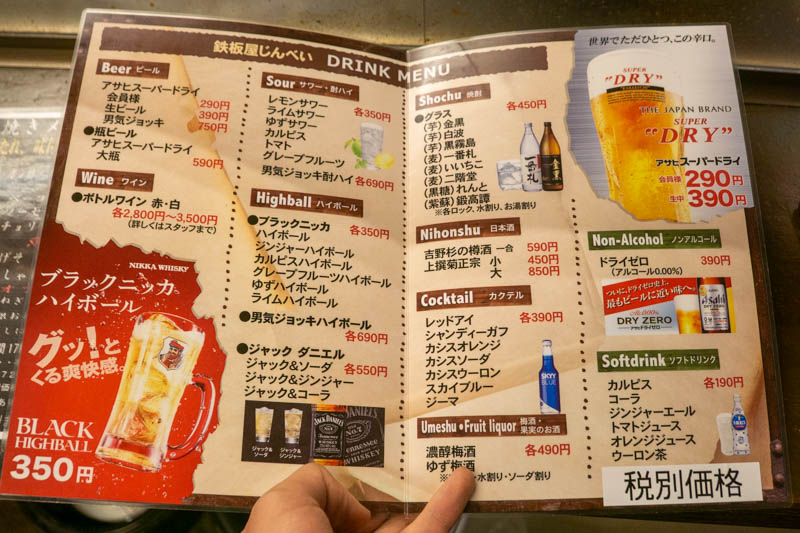 鉄板屋じんべい DRINK MENU
Beer ビール
アサヒスーパードライ
会員様 290円
生ビール 390円
男気ジョッキ 750円
●瓶ビール
アサヒスーパードライ
大瓶 590円
Wine ワイン
●ボトルワイン 赤・白
各2,800円〜3,500円
(詳しくはスタッフまで)
NIKKA WHISKY
ブラックニッカ
ハイボール
グッ!と
くる爽快感。
BLACK
HIGHBALL
350円
Sour サワー・酎ハイ
レモンサワー 各350円
ライムサワー
ゆずサワー
カルピス
トマト
グレープフルーツ
男気ジョッキ酎ハイ 各690円
Highball ハイボール
●ブラックニッカ 各350円
ハイボール
ジンジャーハイボール
カルピスハイボール
グレープフルーツハイボール
ゆずハイボール
ライムハイボール
●男気ジョッキハイボール
各690円
●ジャック ダニエル
ジャック&ソーダ 各550円
ジャック&ジンジャー
ジャック&コーラ
ジャック&
ソーダ
ジャック&
ジンジャー
Shochu 焼酎
●グラス 各450円
(芋)金黒
(芋)白波
(芋)黒霧島
(麦)一番札
(麦)いいちこ
(麦)二階堂
(黒糖)れんと
(紫蘇)鍛高譚
※各ロック、水割り、お湯割り
Nihonshu 日本酒
吉野杉の樽酒 一合 590円
上撰菊正宗 小 450円
大 850円
Cocktail カクテル
レッドアイ 各390円
シャンディーガフ
カシスオレンジ
カシスソーダ
カシスウーロン
スカイブルー
ジーマ
SKYY
BLUE
Umeshu・Fruit liquor 梅酒・
果実のお酒
濃醇梅酒 各490円
ゆず梅酒
・水割り・ソーダ割り
世界でただひとつ、この辛口。
SUPER
"DRY"
THE JAPAN BRAND
SUPER
"DRY"
アサヒスーパードライ
会員様 290円
生中 390円
Non-Alcohol ノンアルコール
ドライゼロ 390円
(アルコール0.00%)
ついに、ドライゼロ史上、
最もビールに近い味へ。
DRY ZERO
アサヒドライゼロ
Asahi
Softdrink ソフトドリンク
カルピス 各190円
コーラ
ジンジャーエール
トマトジュース
オレンジジュース
ウーロン茶
税別価格